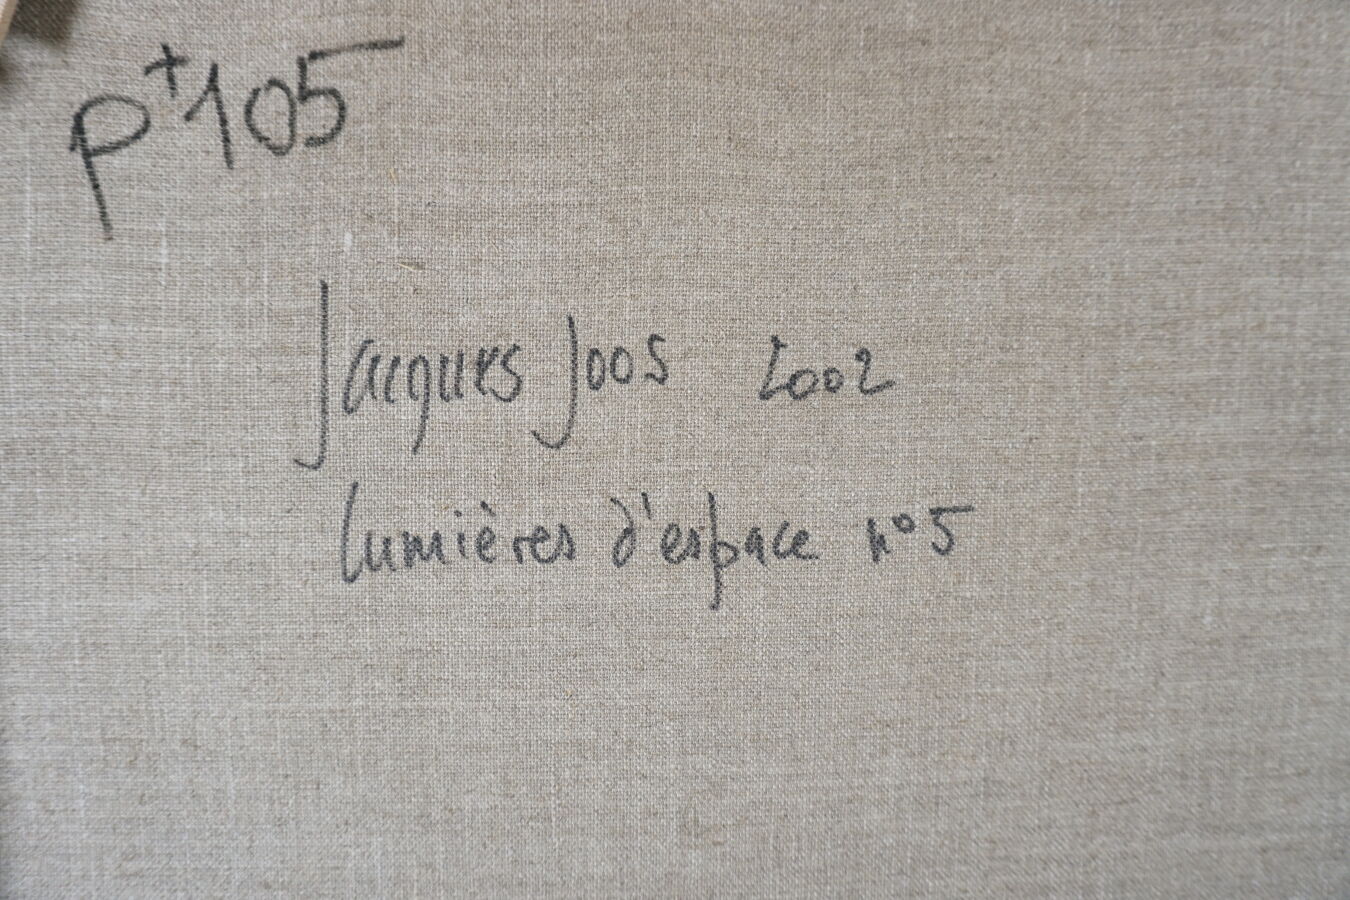 P+105
Jacques Joos 2002
Lumières d'espace n°5